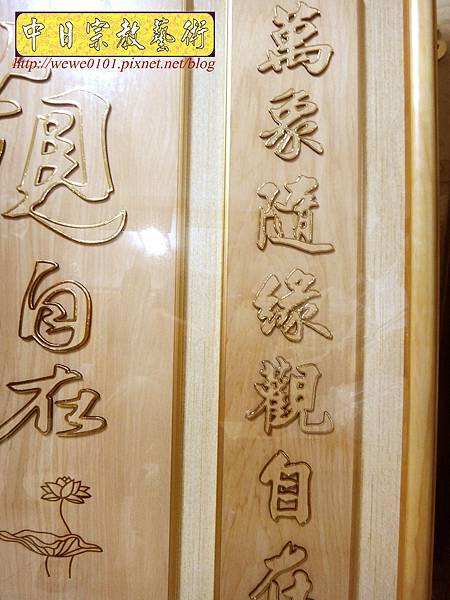 中日宗教藝術
http://wewe0101.pixnet.net/blog
萬象隨緣觀自在
觀自在